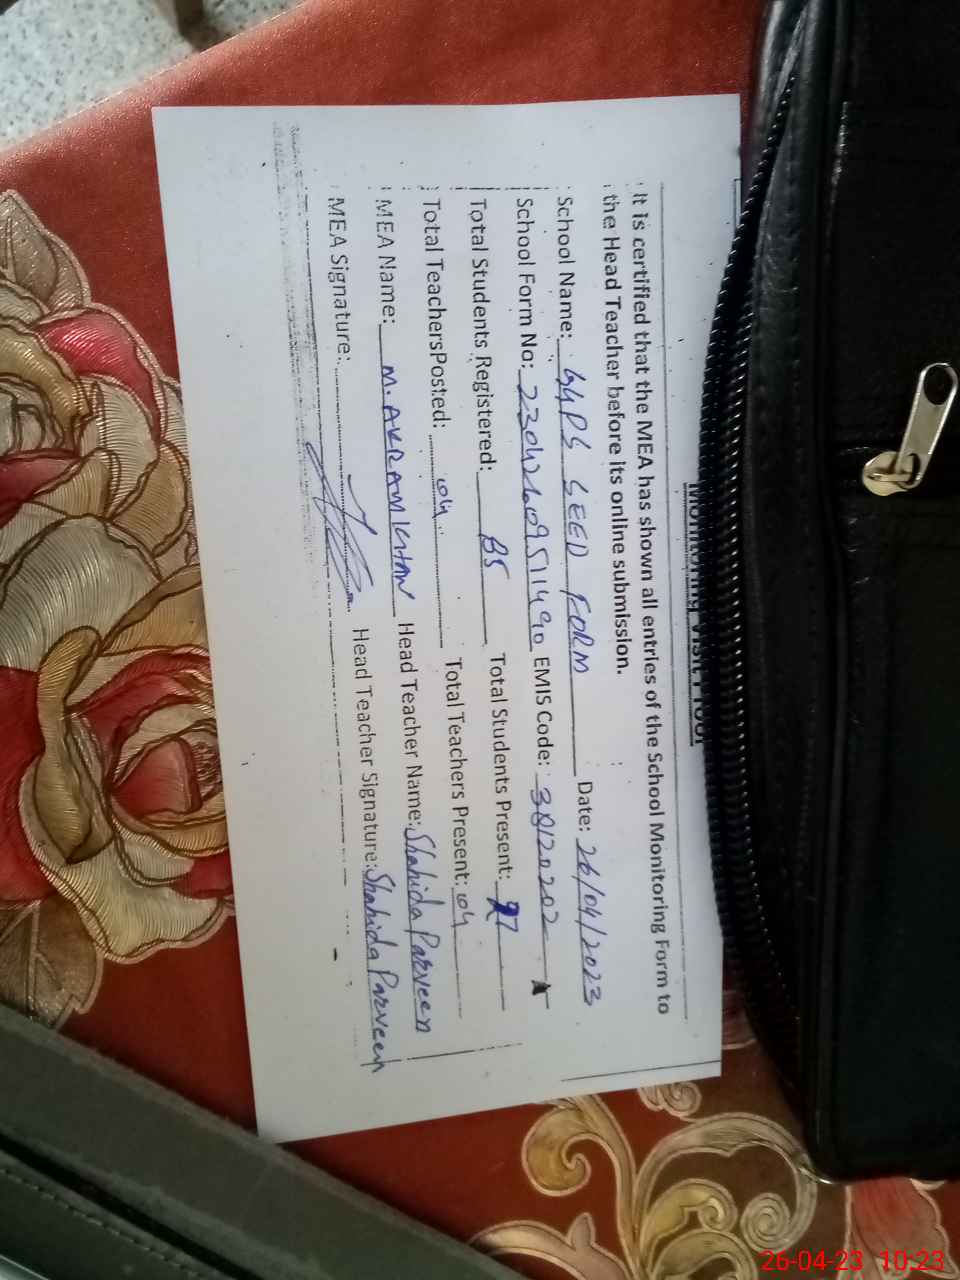 Monitoring Visit Proof
It is certified that the MEA has shown all entries of the School Monitoring Form to
the Head Teacher before its online submission.
School Name: GGPS SEED FORM Date: 26/04/2023
School Form No: 23042609511490 EMIS Code: 38120202
Total Students Registered: 85 Total Students Present: 27
Total TeachersPosted: 04 Total Teachers Present: 04
MEA Name: M. AKRAM KHAN Head Teacher Name: Shahida Parveen
MEA Signature: Head Teacher Signature: Shahida Parveen
26-04-23 10:23